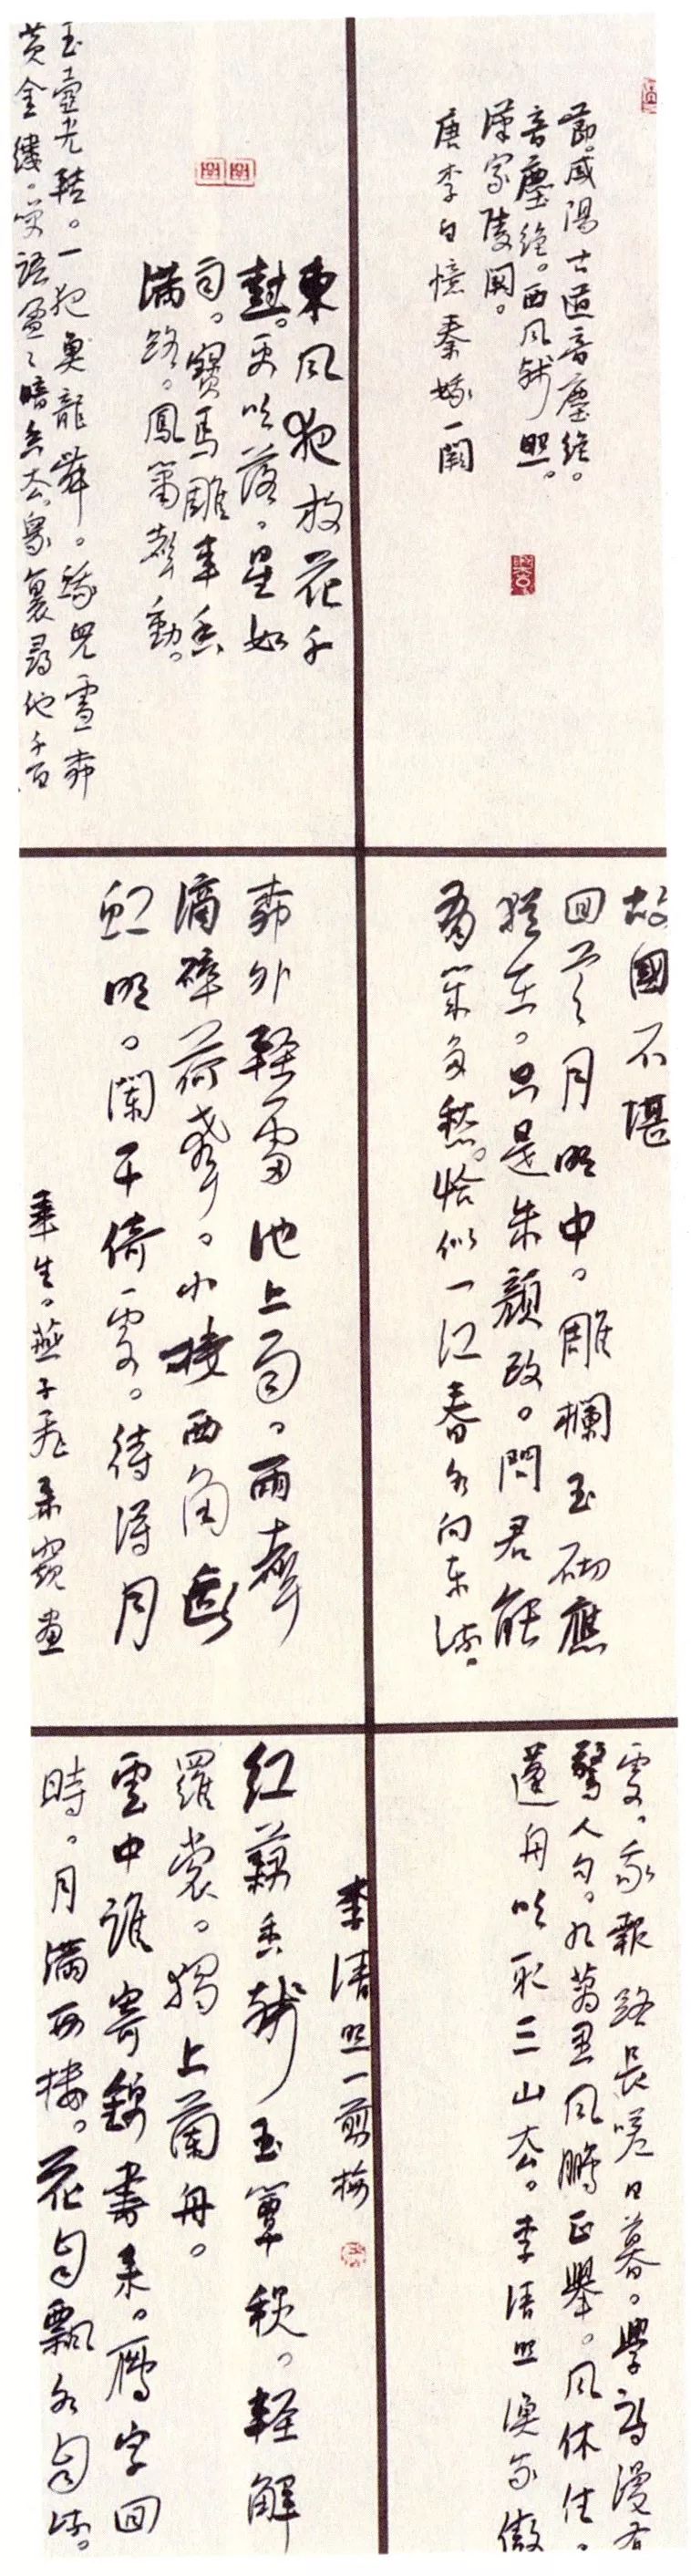 節。咸陽古道音塵絕。
音塵絕。西風殘照。
漢家陵闕。
唐李白憶秦娥一闋
東風夜放花千
樹。更吹落。星如
雨。寶馬雕車香
滿路。鳳簫聲動。
玉壺光轉。一夜魚龍舞。蛾兒雪柳
黃金縷。笑語盈々暗香去。眾裏尋他千百
故國不堪
回首月明中。雕欄玉砌應
猶在。只是朱顏改。問君能
有幾多愁。恰似一江春水向東流。
柳外輕雷池上雨。雨聲
滴碎荷聲。小樓西角斷
虹明。闌干倚處。待得月
華生。燕子飛來窺畫
處。我報路長嗟日暮。學詩漫有
驚人句。九萬里風鵬正舉。風休住。
蓬舟吹取三山去。李清照漁家傲
李清照一剪梅
紅藕香殘玉簟秋。輕解
羅裳。獨上蘭舟。
雲中誰寄錦書來。雁字回
時。月滿西樓。花自飄水自流。